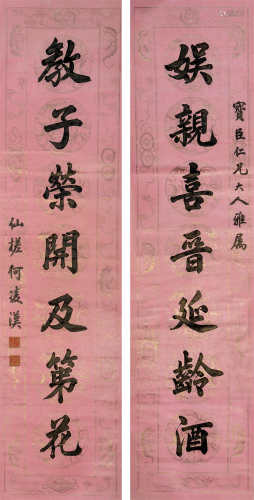 寶臣仁兄大人雅屬
娱親喜晉延齡酒
教子榮開及第花
仙槎何凌漢